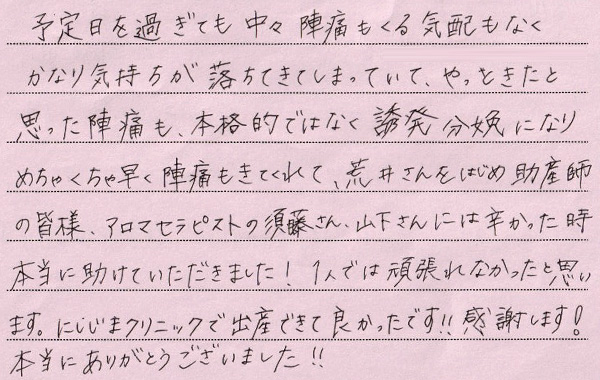 予定日を過ぎても中々陣痛もくる気配もなく
かなり気持ちが落ちてきてしまっていて、やっときたと
思った陣痛も、本格的ではなく誘発分娩になり
めちゃくちゃ早く陣痛もきてくれて、荒井さんをはじめ助産師
の皆様、アロマセラピストの須藤さん、山下さんには辛かった時
本当に助けていただきました！1人では頑張れなかったと思い
ます。にしじまクリニックで出産できて良かったです!!感謝します！
本当にありがとうございました!!